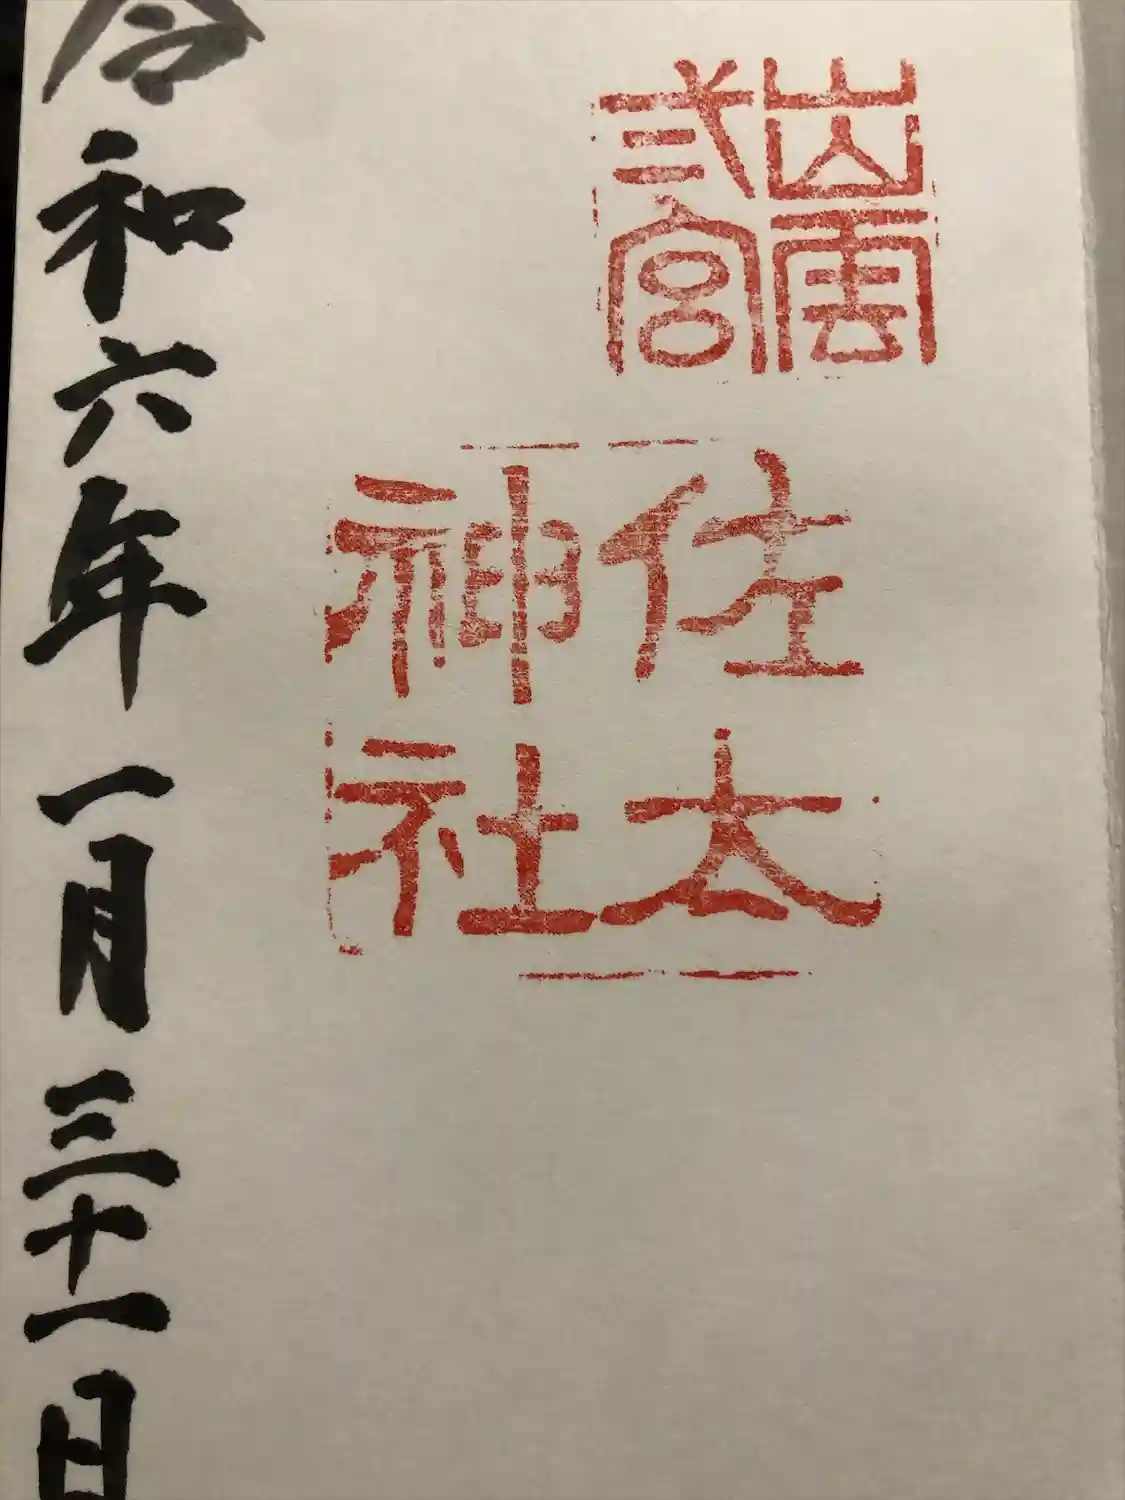 出雲
弐宮
佐太
神社
令和六年一月三十一日